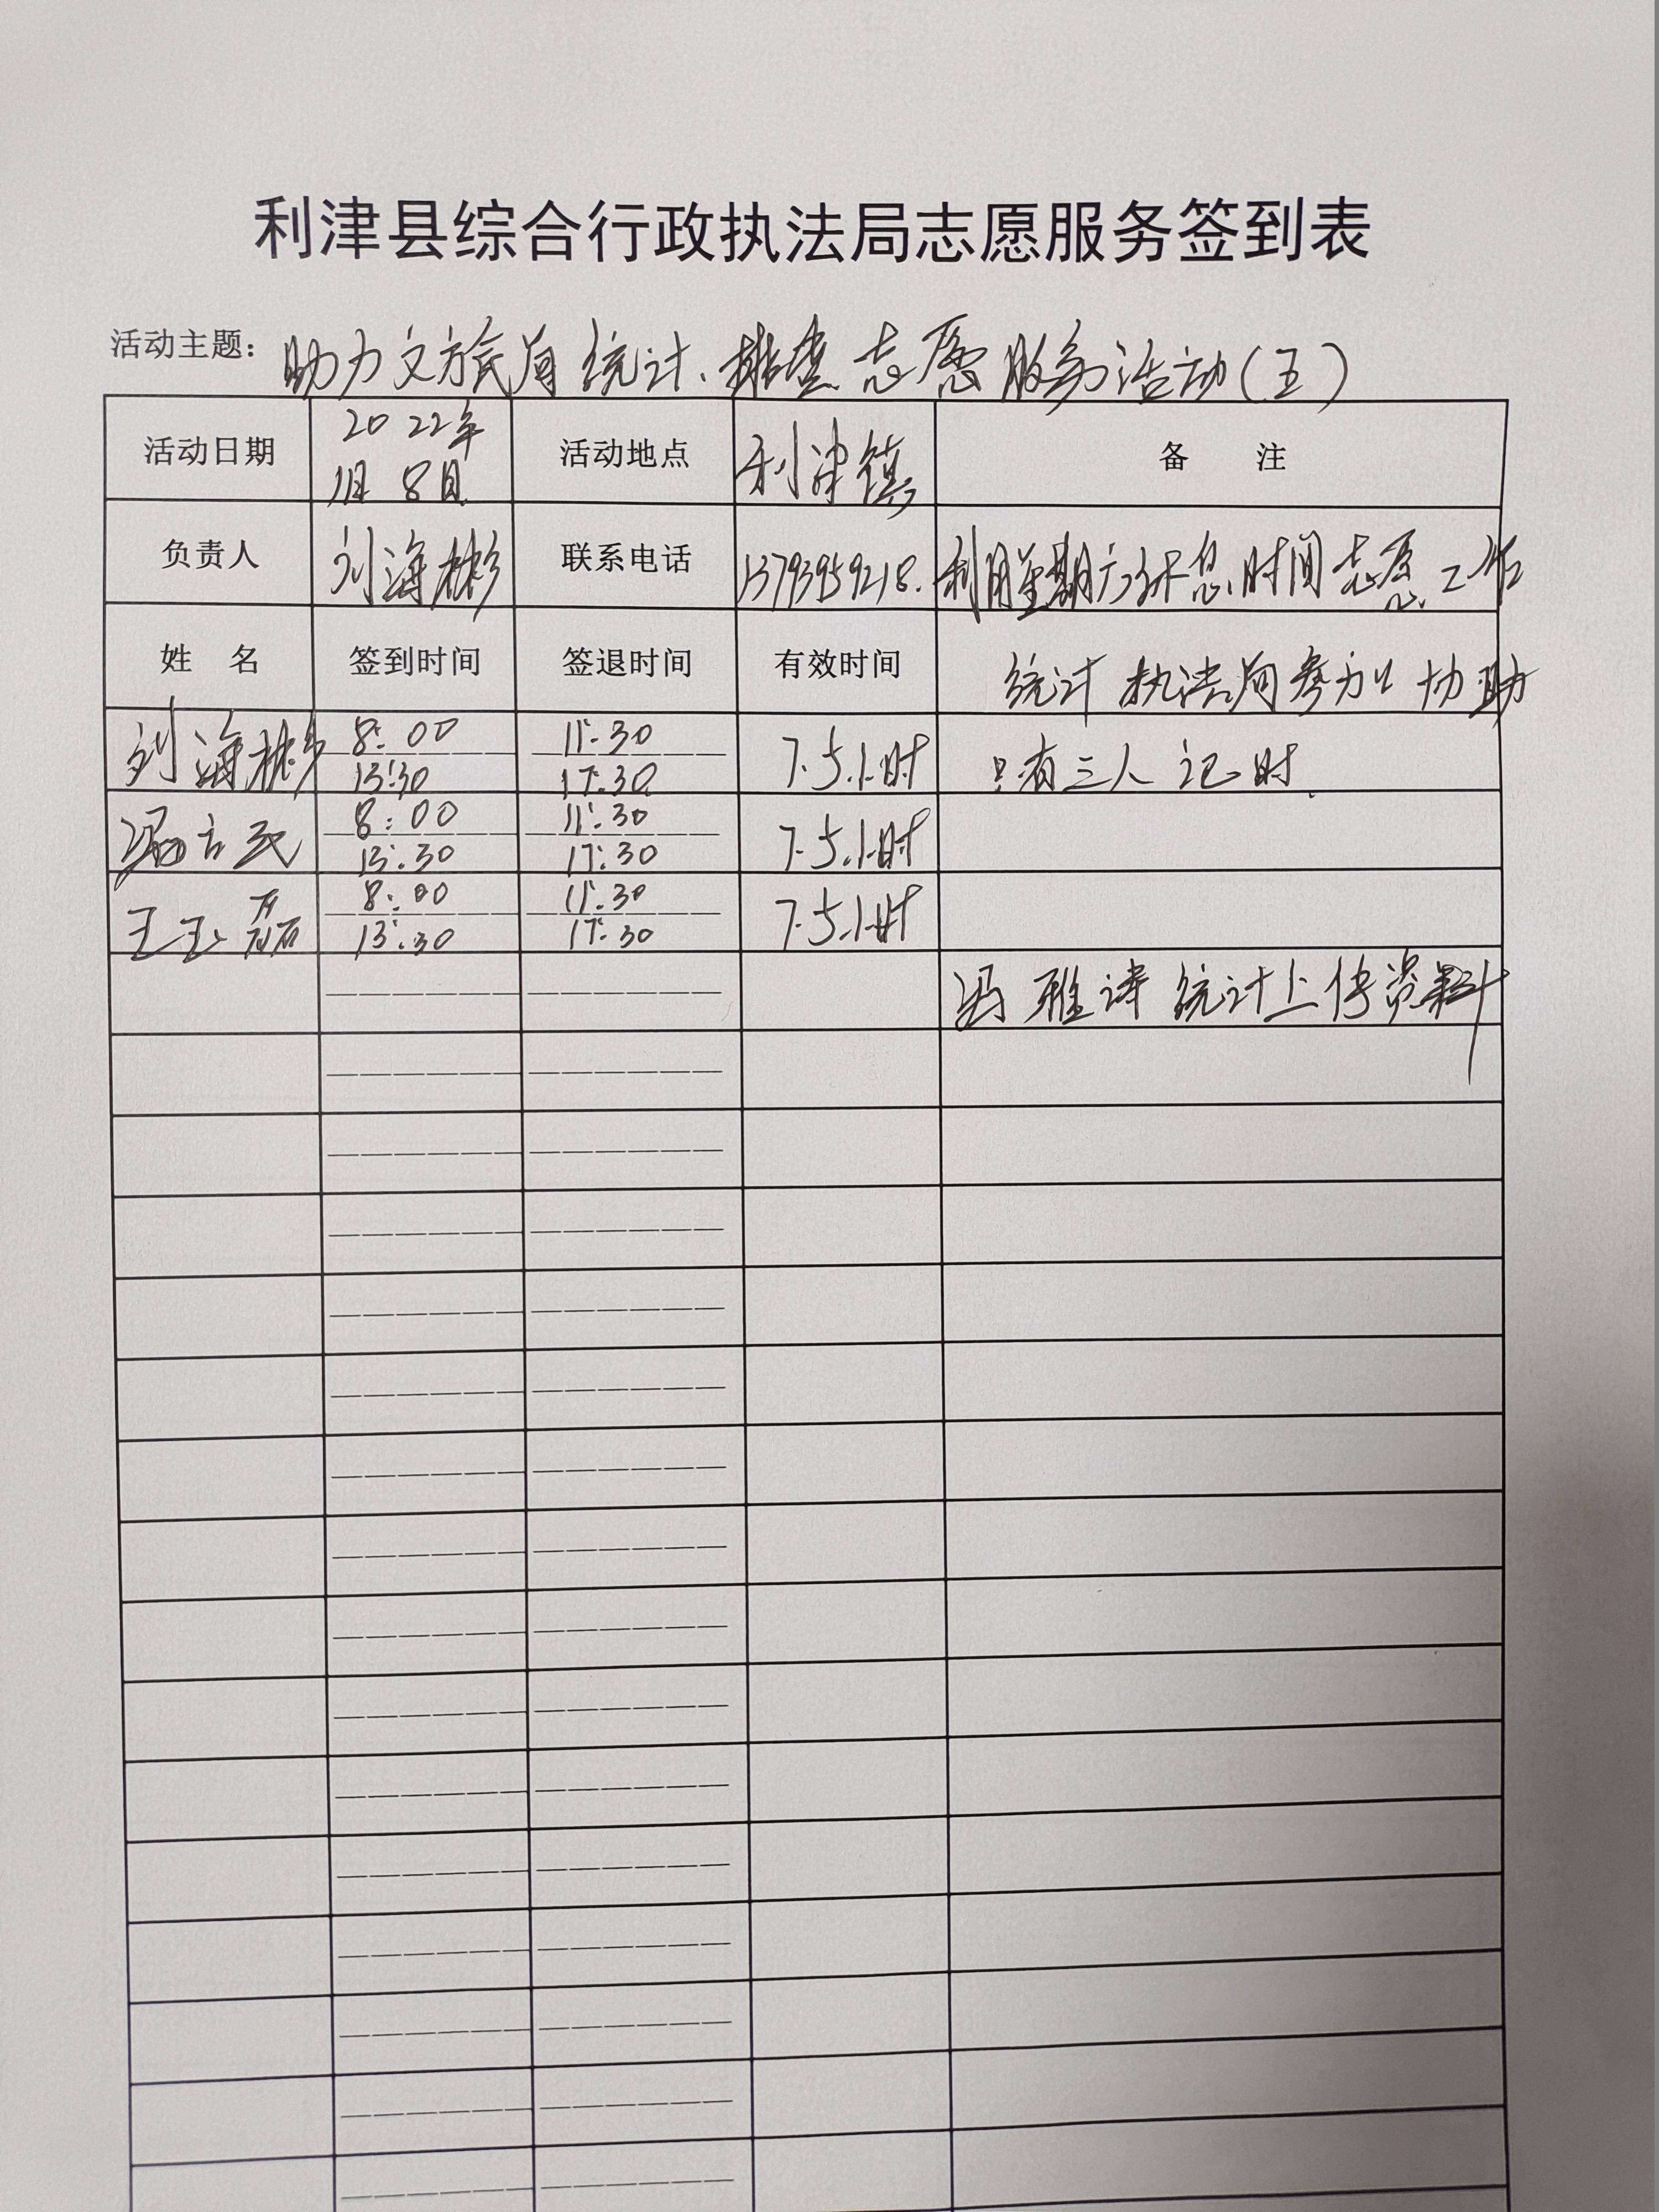 利津县综合行政执法局志愿服务签到表
活动主题：助力文旅局统计、排查志愿服务活动（五）
活动日期 2022年1月8日 活动地点 利津镇 备 注
负责人 刘海彬 联系电话 13793959218. 利用星期六休息时间志愿工作
姓 名 签到时间 签退时间 有效时间 统计 执法局参加 协助
刘海彬 8:00 11:30 7.5小时 只有三人记时
13:30 17:30
8:00 11:30 7.5小时
13:30 17:30
王玉磊 8:00 11:30 7.5小时
13:30 17:30
冯雅诗统计上传资料